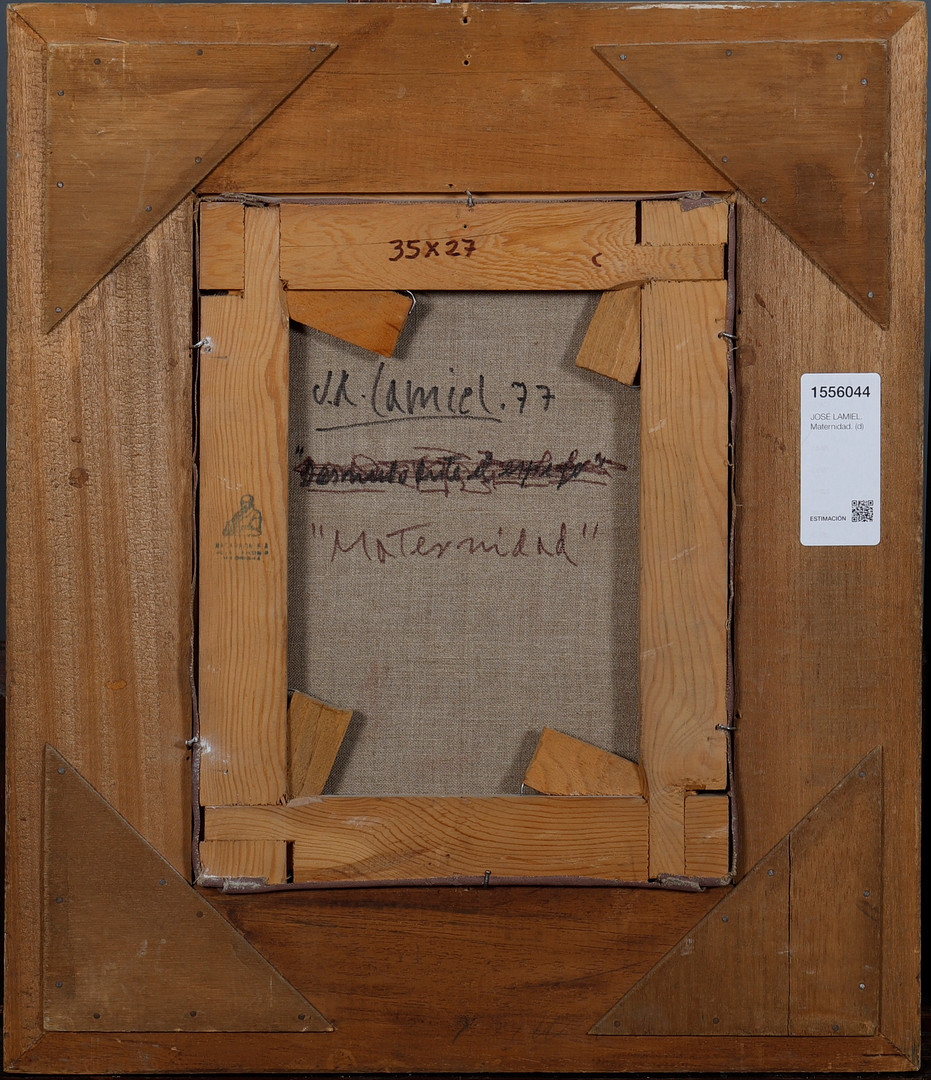 35X27
C
J.A. Lamiel. 77
"Maternidad"
1556044
JOSÉ LAMIEL.
Maternidad. (d)
ESTIMACIÓN